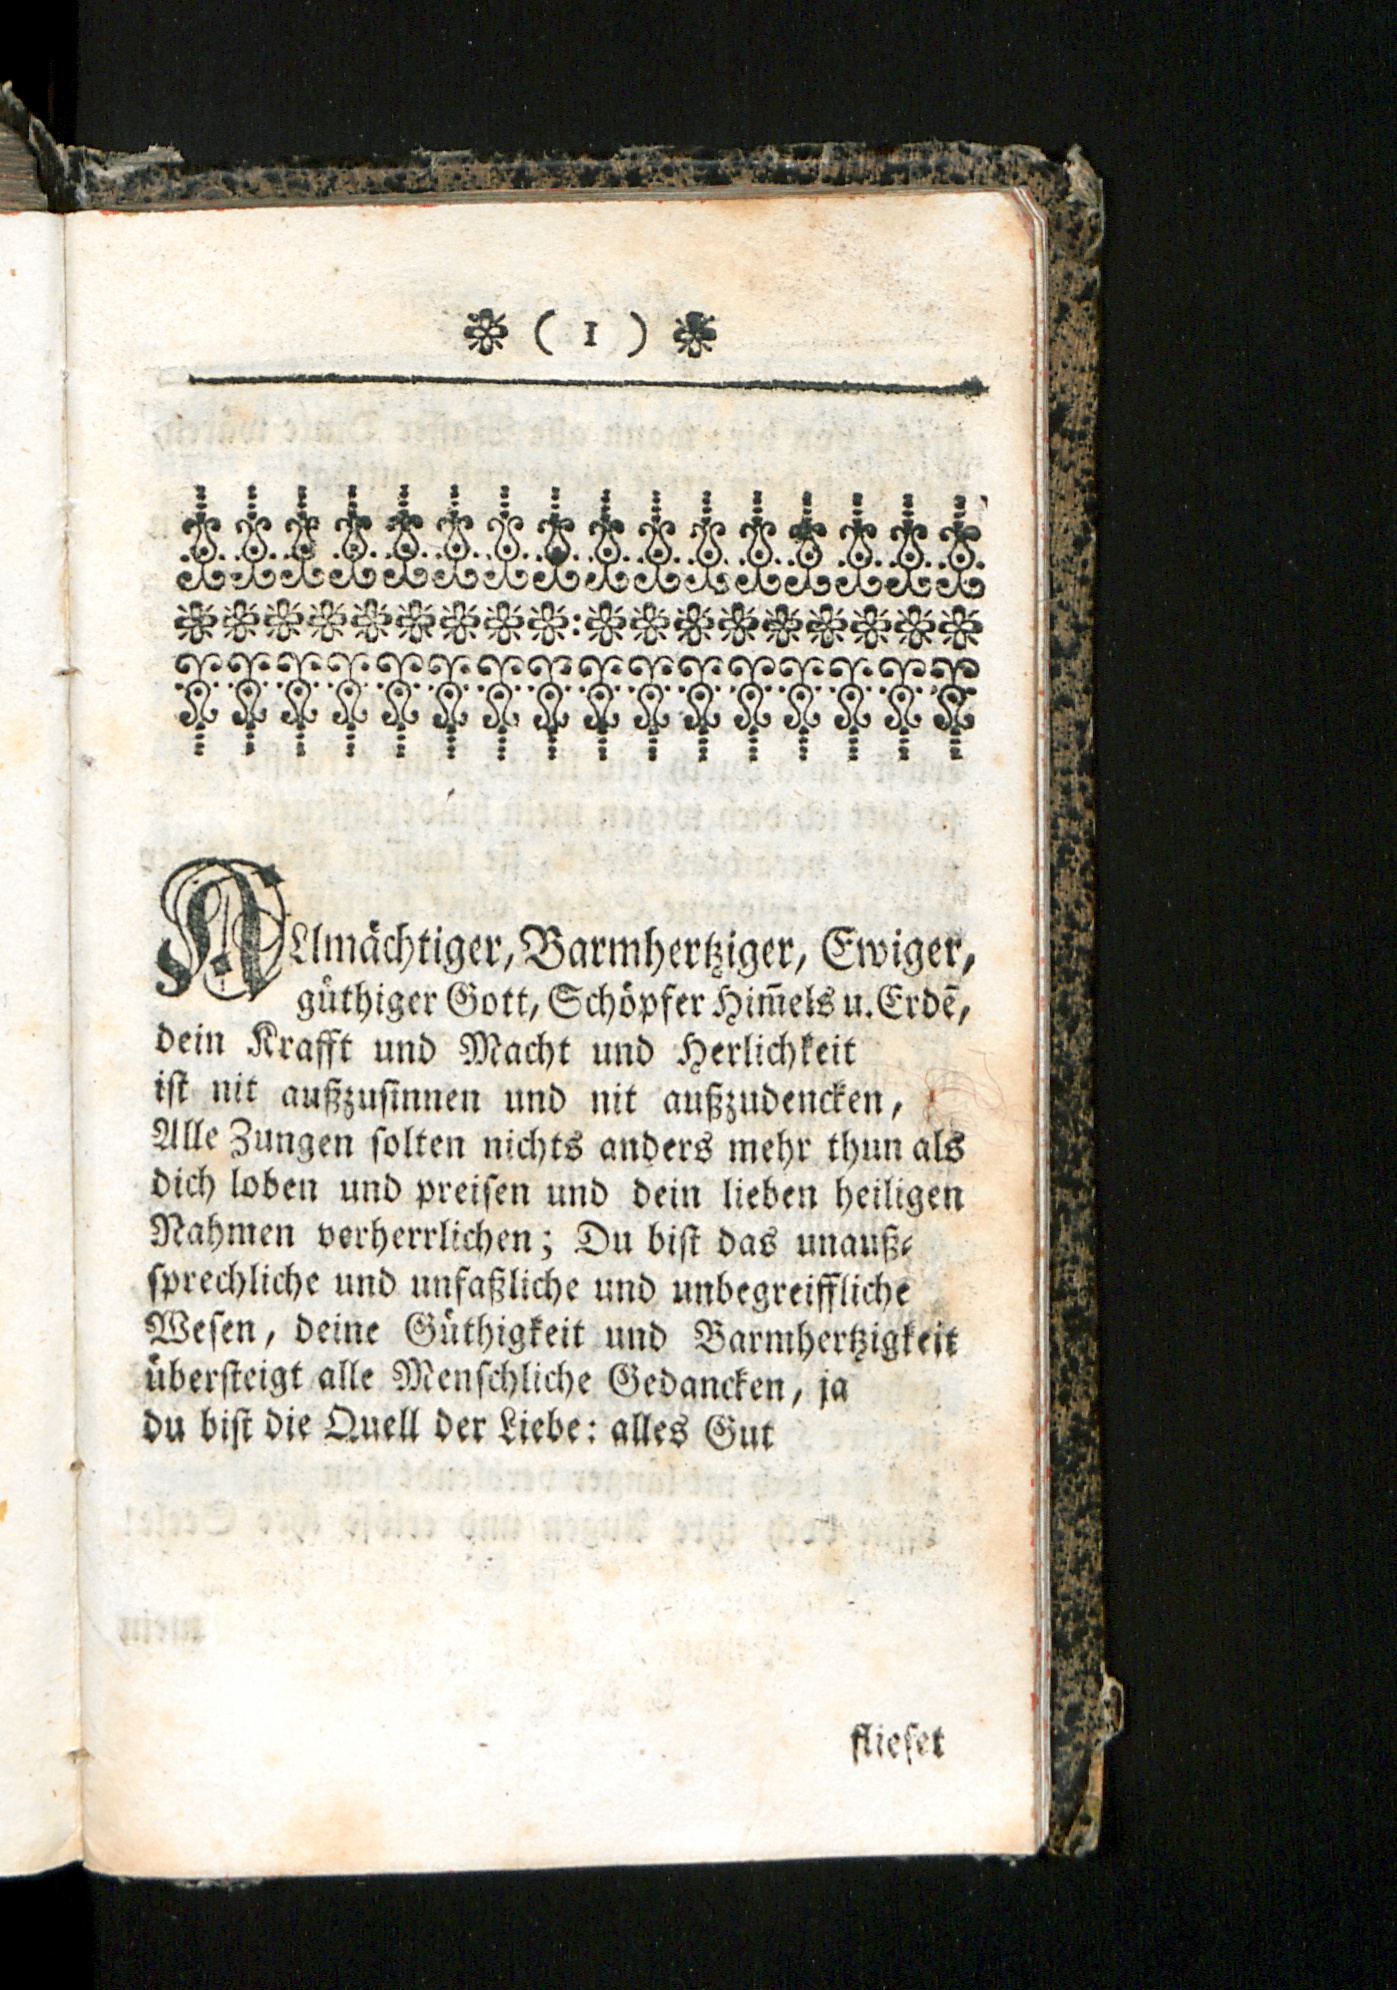 ❀ ( 1 ) ❀
ALlmächtiger, Barmhertziger, Ewiger,
güthiger Gott, Schöpfer Him̄els u. Erdē,
dein Krafft und Macht und Herlichkeit
ist nit außzusinnen und nit außzudencken,
Alle Zungen solten nichts anders mehr thun als
dich loben und preisen und dein lieben heiligen
Nahmen verherrlichen; Du bist das unauß-
sprechliche und unfaßliche und unbegreiffliche
Wesen, deine Güthigkeit und Barmhertzigkeit
übersteigt alle Menschliche Gedancken, ja
du bist die Quell der Liebe: alles Gut
flieset